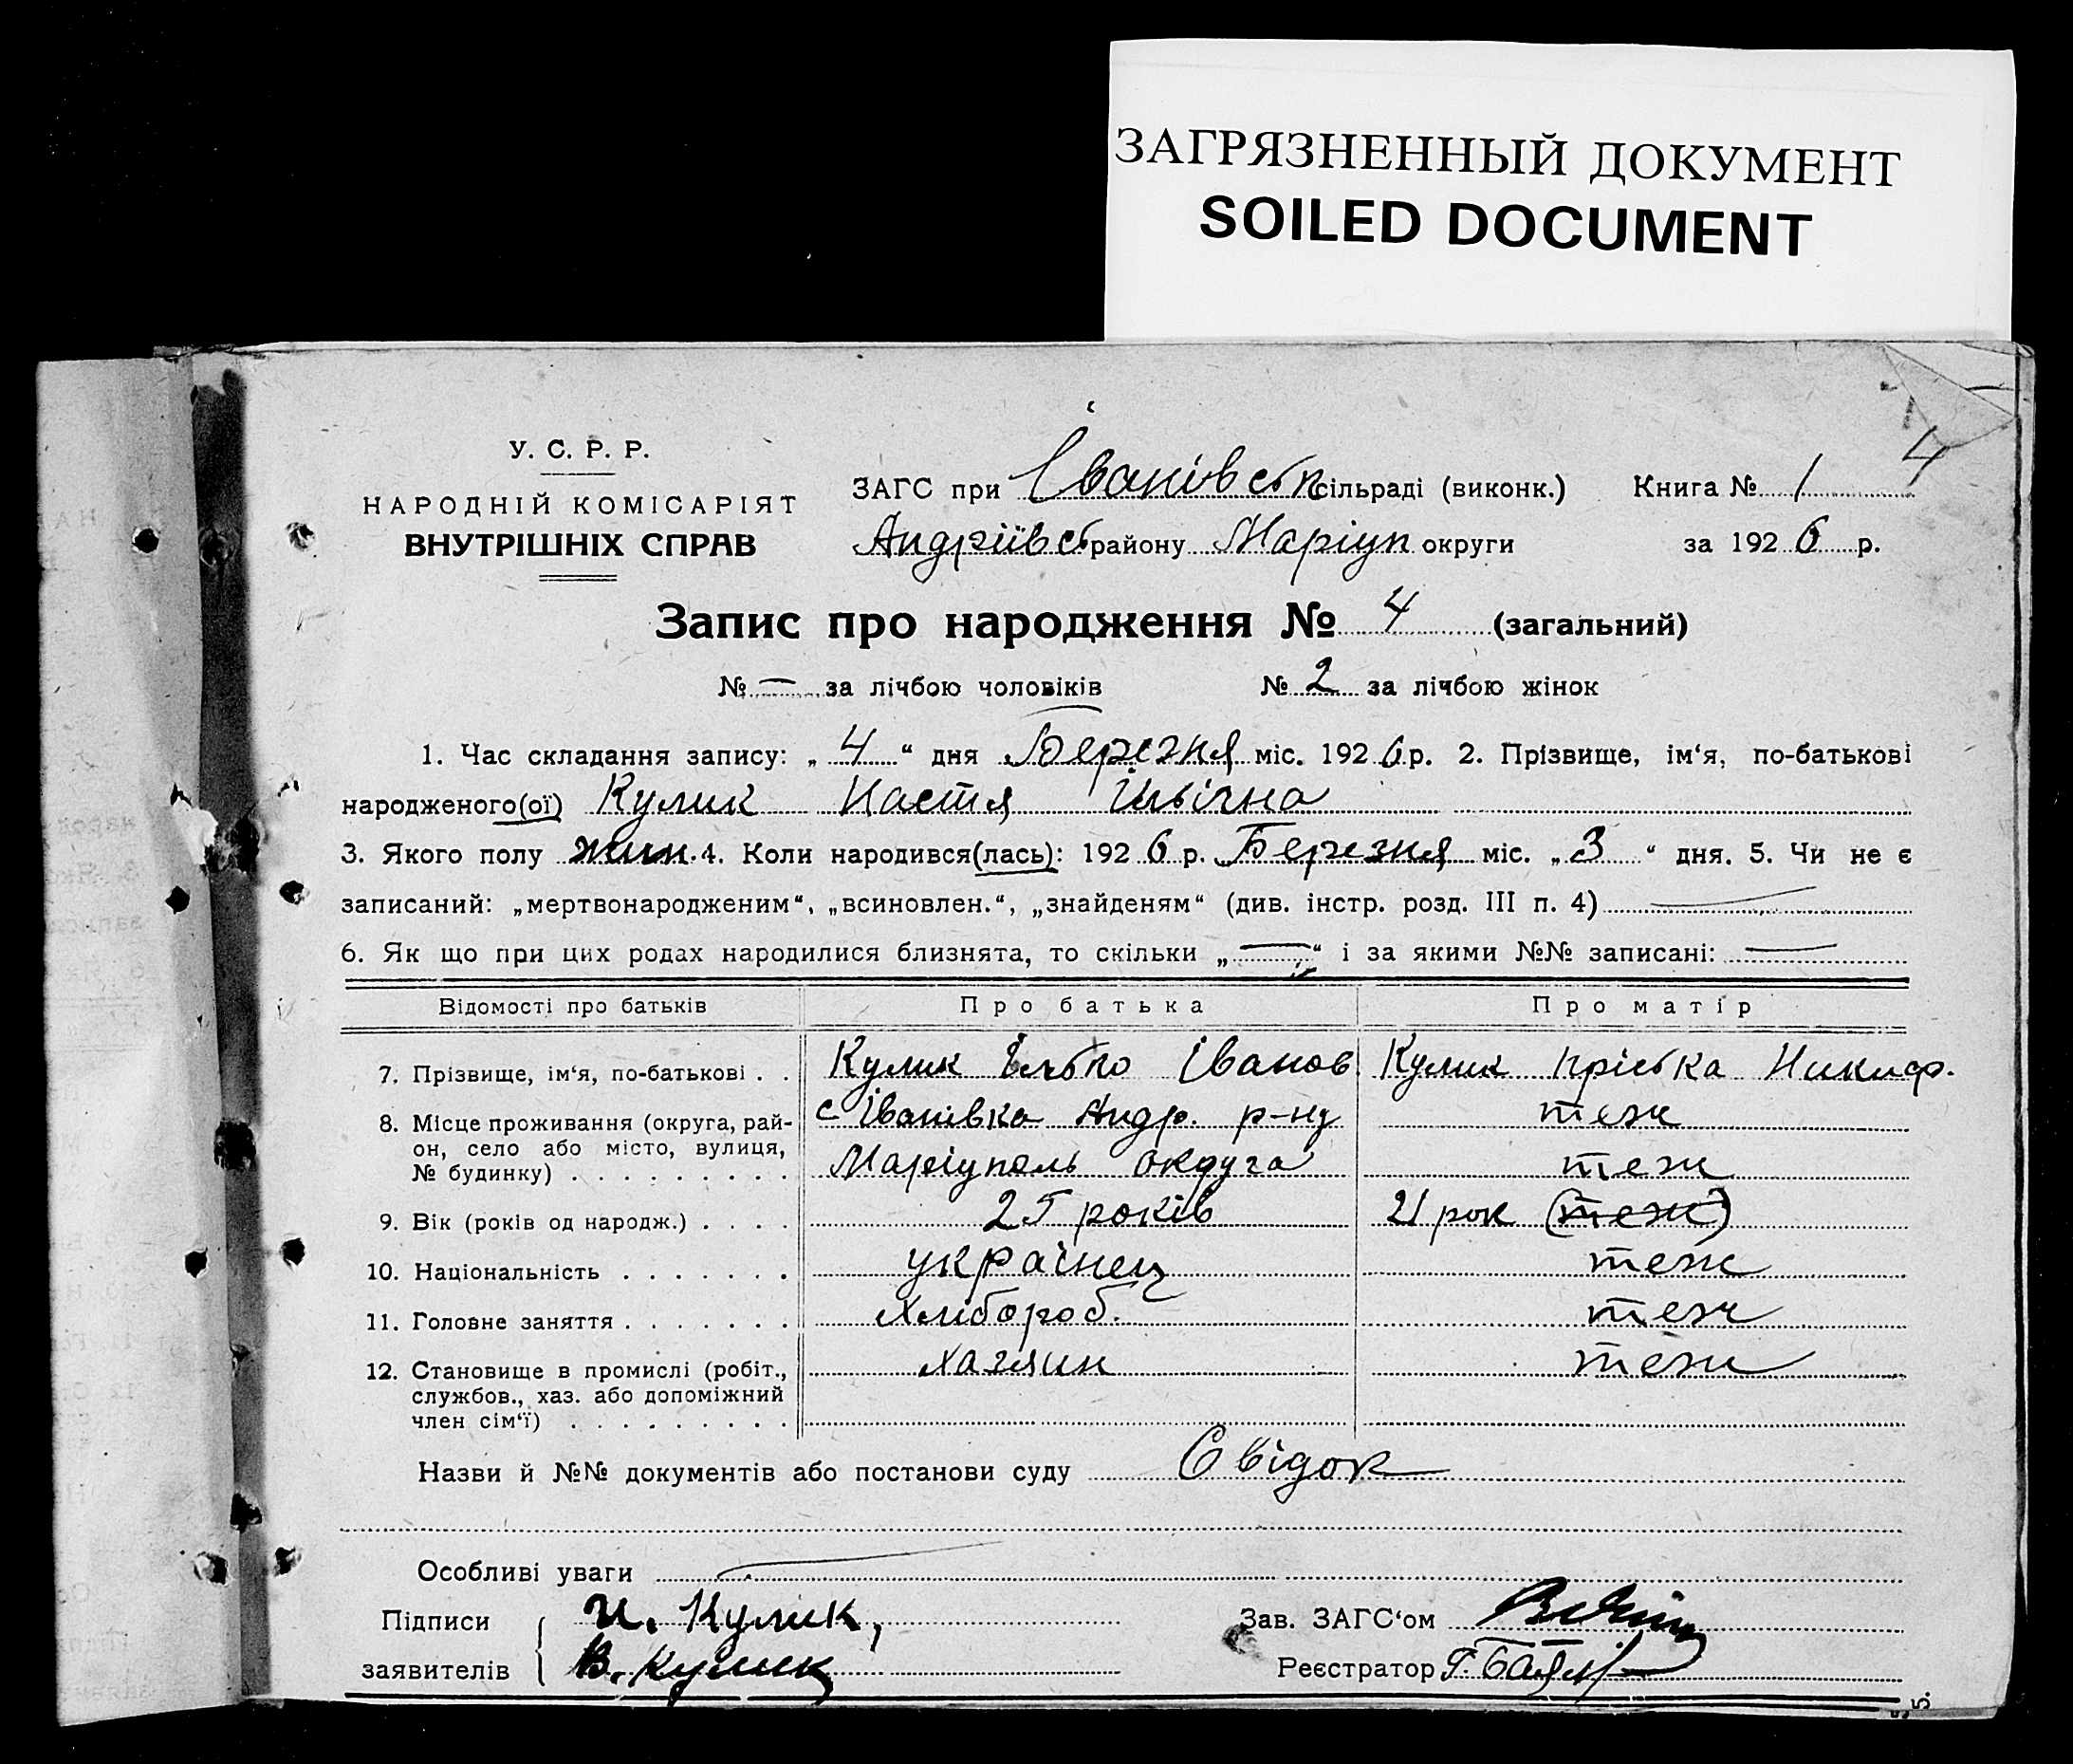 ЗАГРЯЗНЕННЫЙ ДОКУМЕНТ
SOILED DOCUMENT
4
У. С. Р. Р.
НАРОДНІЙ КОМІСАРІЯТ
ВНУТРІШНІХ СПРАВ
ЗАГС при Іванівськ сільраді (виконк.) Книга № 1
Андріївс району Маріуп округи за 1926 р.
Запис про народження № 4 (загальний)
№ — за лічбою чоловіків № 2 за лічбою жінок
1. Час складання запису: „4“ дня Березня міс. 1926 р. 2. Прізвище, ім‘я, по-батькові
народженого(ої) Кулик Настя Ільічна
3. Якого полу жін. 4. Коли народився(лась): 1926 р. Березня міс. „3“ дня. 5. Чи не є
записаний: „мертвонародженим“, „всиновлен.“, „знайденям“ (див. інстр. розд. III п. 4) —
6. Як що при цих родах народилися близнята, то скільки „—“ і за якими №№ записані: —
Відомості про батьків Про батька Про матір
7. Прізвище, ім‘я, по-батькові . . Кулик Ілько Іванов Кулик Пріська Никиф.
8. Місце проживання (округа, рай- с Іванівка Андр. р-ну теж
он, село або місто, вулиця,
№ будинку) . . . . . . . . . Маріуполь округа теж
9. Вік (років од народж.) . . . . 25 років 21 рок (теж)
10. Національність . . . . . . . українец теж
11. Головне заняття . . . . . . . хлібороб. теж
12. Становище в промислі (робіт., хазяин теж
службов., хаз. або допоміжний
член сім‘ї) . . . . . . . . .
Назви й №№ документів або постанови суду Свідок
Особливі уваги —
Підписи И. Кулик, Зав. ЗАГС‘ом
заявителів В. Кулик Реєстратор Г.
5.